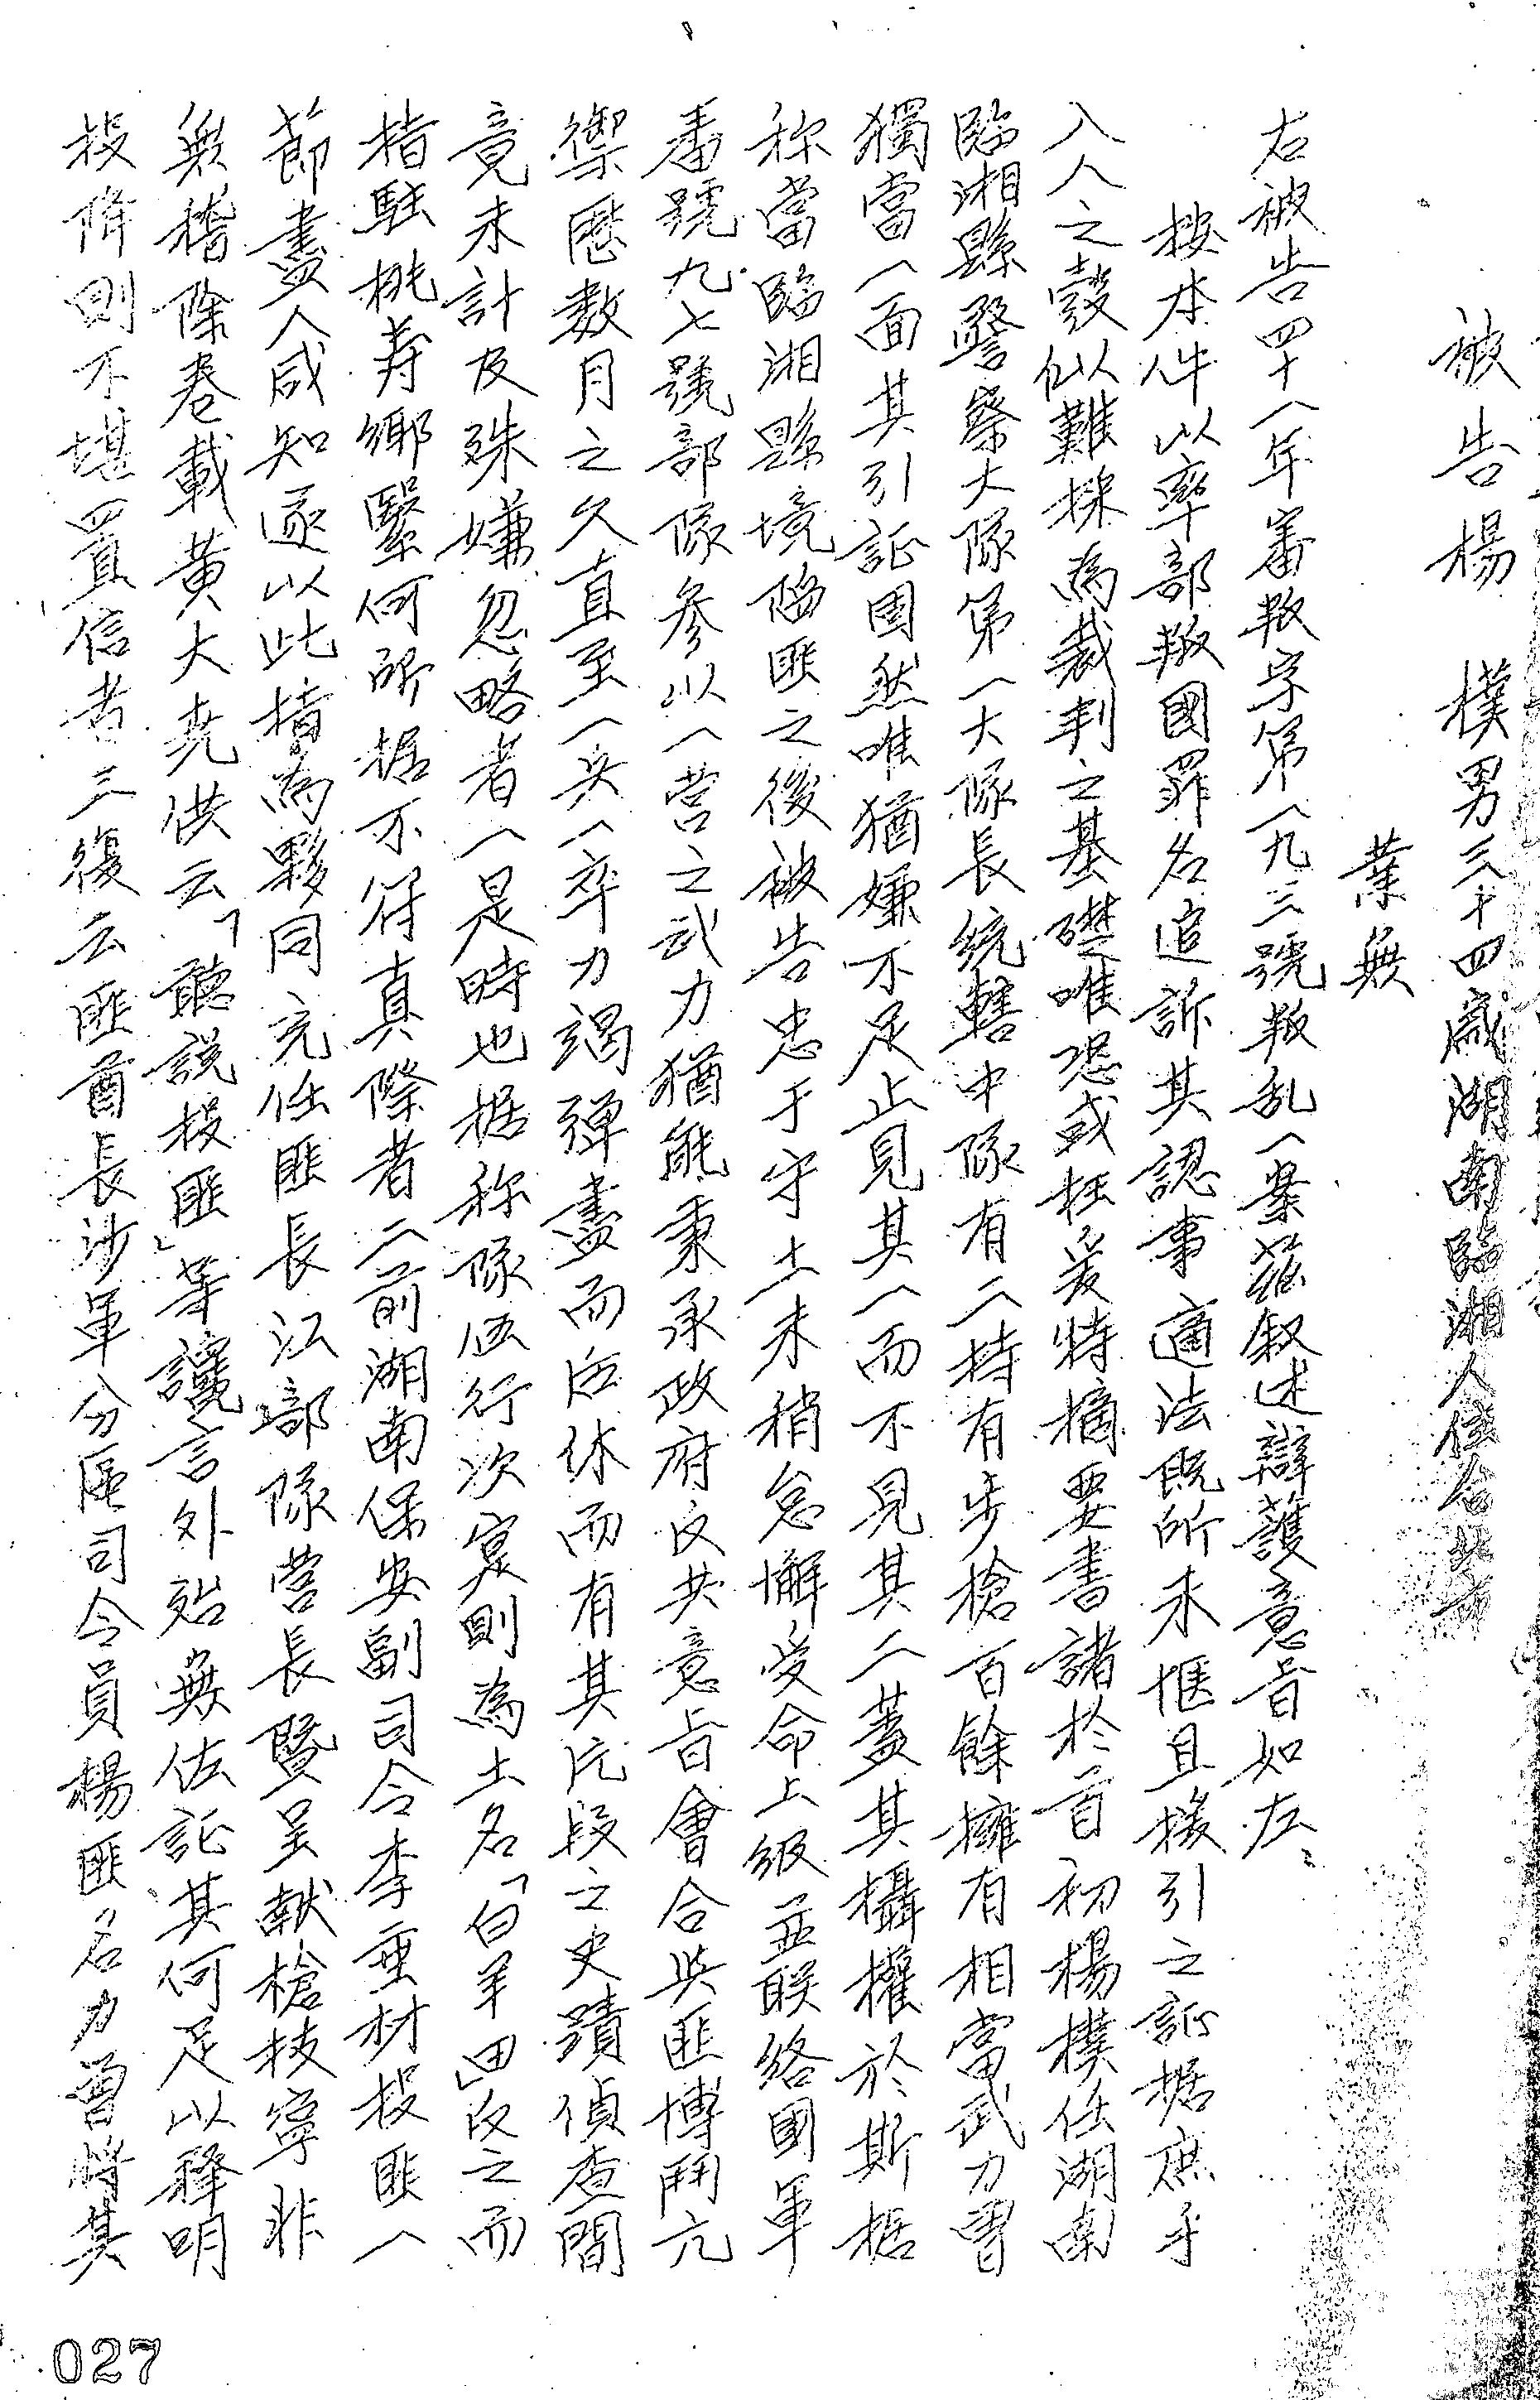 被告楊　樸男三十四歲湖南臨湘人住台北市
業無
右被告四十一年審叛字第一九三號叛乱一案茲叙述辯護意旨如左：
按本件以率部叛國罪名追訴其認事適法既所未愜且援引之証据庶乎
入人之彀似難採為裁判之基礎唯恐或枉爰特摘要書諸於首初楊樸任湖南
臨湘縣警察大隊第一大隊長統轄中隊有二持有步槍百餘擁有相當武力曾
獨當一面其引証固然唯猶嫌不足止見其一而不見其二蓋其攝權於斯据
称當臨湘縣境陷匪之後被告忠于守土未稍怠懈受命上級並联絡國軍
番號九七號部隊參以一营之武力猶能秉承政府反共意旨會合與匪博鬥亢
禦歷数月之久直至一兵一卒力竭彈盡而后休而有其片段之史蹟偵查間
竟未計及殊嫌忽略者一是時也据称隊伍行次寔則為土名「白羊田」反之而
指駐桃寿鄉緊何所据不符真際者二前湖南保安副司令李垂材投匪一
節盡人咸知遂以此揹為夥同充任匪長江部隊营長暨呈献槍枝寧非
無稽除卷載黃大堯供云「聽説投匪」等讕言外殆無佐証其何足以釋明
投降則不堪置信者三復云匪酋長沙軍分區司令員楊匪名力曾將其
027